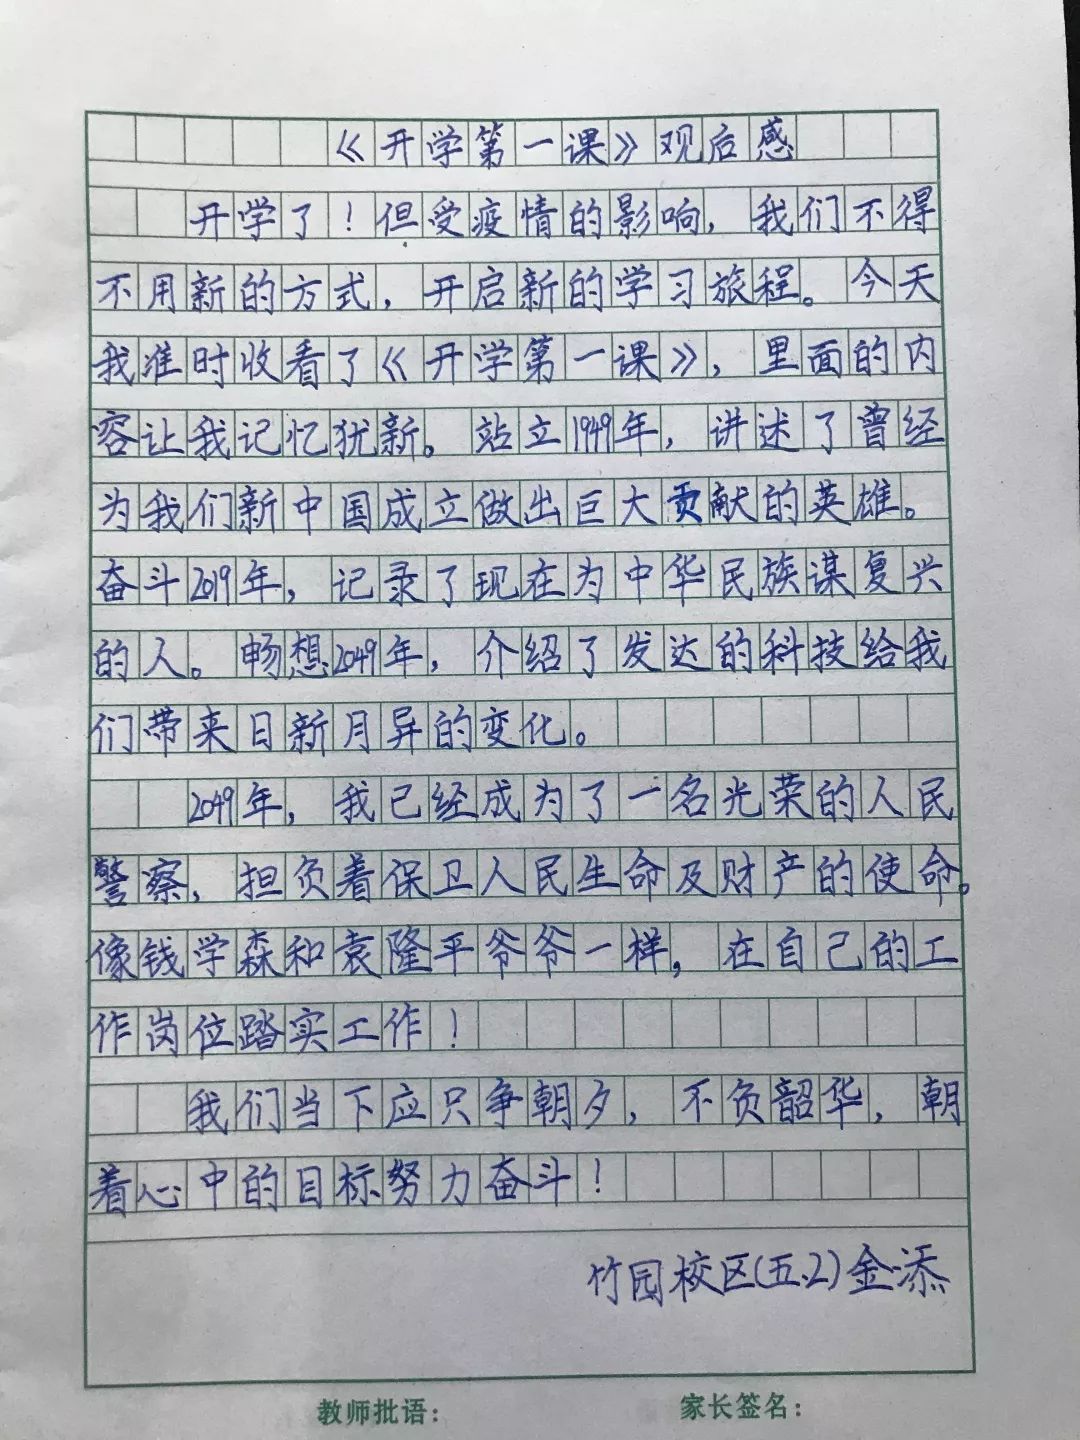 《开学第一课》观后感
开学了！但受疫情的影响，我们不得
不用新的方式，开启新的学习旅程。今天
我准时收看了《开学第一课》，里面的内
容让我记忆犹新。站立1949年，讲述了曾经
为我们新中国成立做出巨大贡献的英雄。
奋斗2019年，记录了现在为中华民族谋复兴
的人。畅想2049年，介绍了发达的科技给我
们带来日新月异的变化。
2049年，我已经成为了一名光荣的人民
警察，担负着保卫人民生命及财产的使命。
像钱学森和袁隆平爷爷一样，在自己的工
作岗位踏实工作！
我们当下应只争朝夕，不负韶华，朝
着心中的目标努力奋斗！
竹园校区(五.2)金添
教师批语：
家长签名：